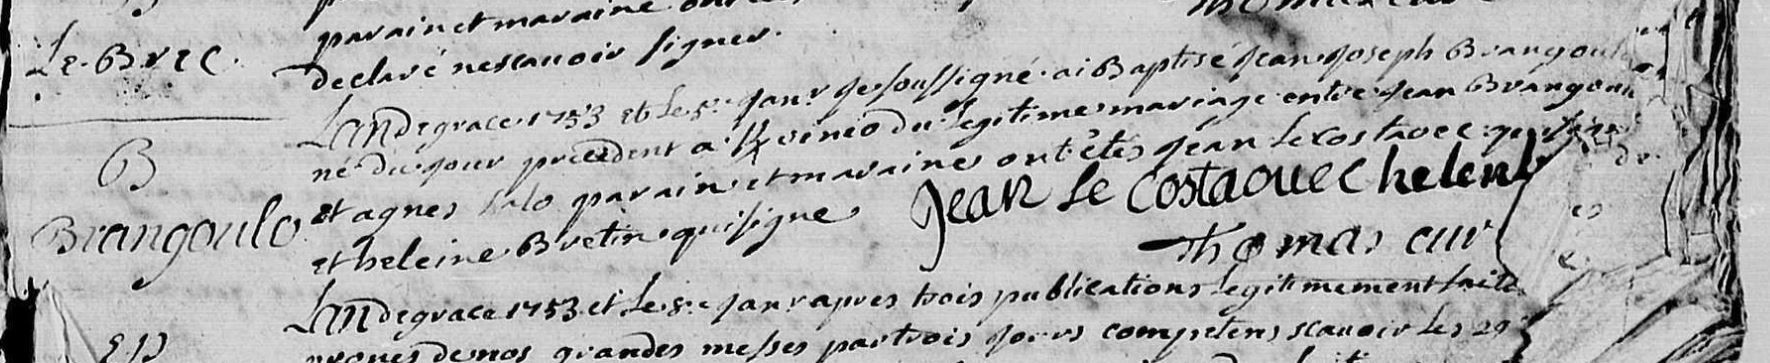 parain et maraine
declaré ne scavoir signer.
Le Brec.
L'an de grace 1753 et le 5e janvr je soussigné ai Baptisé jean joseph Brangoulo
né du jour precedent a du legitime mariage entre jean Brangoulo
B
et agnes parain et maraine ont étés jean le costaouec qui signe
Brangoulo
et heleine Bretin qui signe
jean le costaouec helene
Thomas cur
L'an de grace 1753 et le 8e janvr apres trois publications legitimement faite
prones de nos grandes messes par trois jours competens scavoir les 29